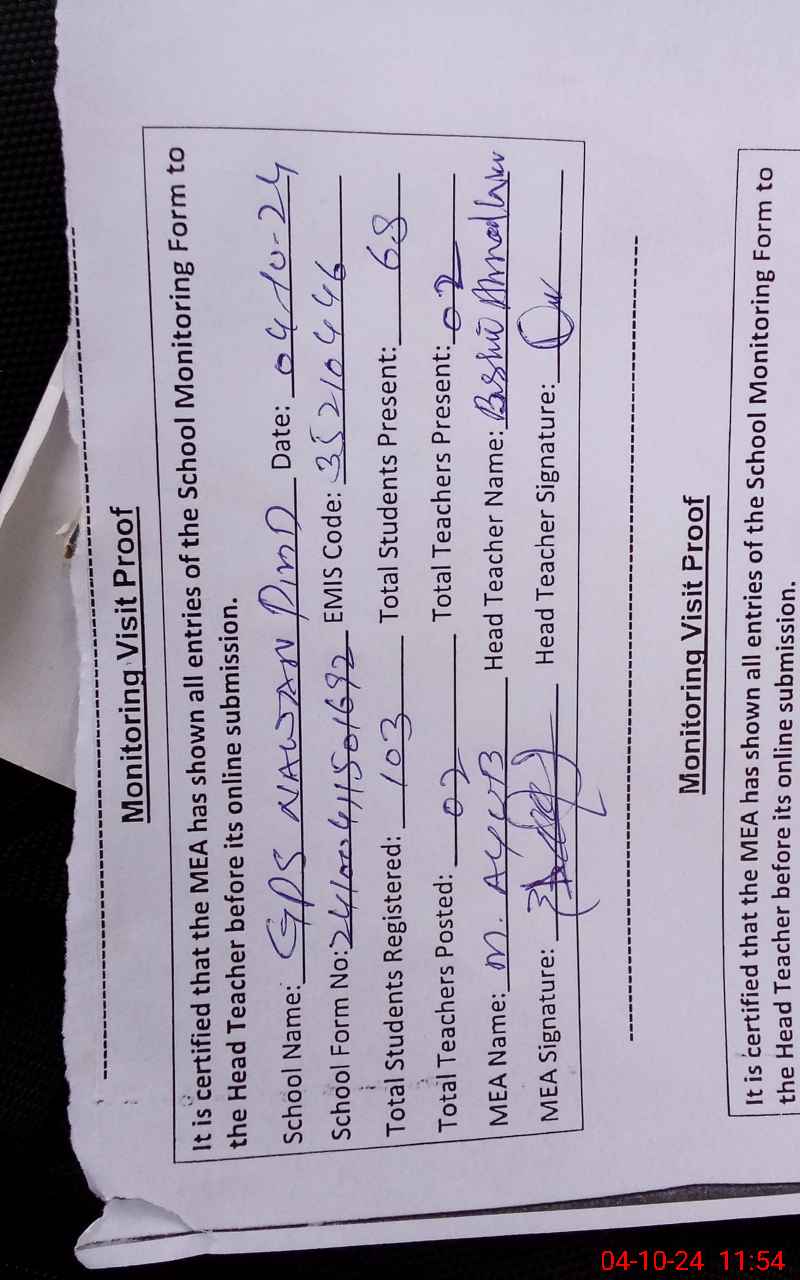 Monitoring Visit Proof
It is certified that the MEA has shown all entries of the School Monitoring Form to
the Head Teacher before its online submission.
School Name: GPS NAWAN PIND Date: 04-10-24
School Form No: EMIS Code: 35210446
Total Students Registered: 103 Total Students Present: 68
Total Teachers Posted: 02 Total Teachers Present: 02
MEA Name: M. AYUB Head Teacher Name: Bashir Ahmad
MEA Signature: Head Teacher Signature:
Monitoring Visit Proof
It is certified that the MEA has shown all entries of the School Monitoring Form to
the Head Teacher before its online submission.
04-10-24 11:54